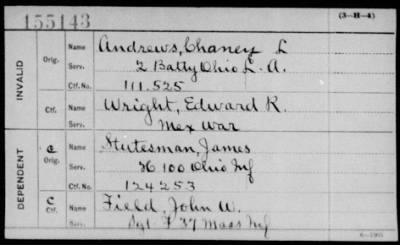 155143
(3-H-4)
INVALID
Orig.
Name Andrews, Chaney L
Serv. 2 Batty Ohio L. A.
Ctf. No. 111.525
Ctf.
Name Wright, Edward K.
Serv. Mex War
DEPENDENT
C
Orig.
Name Stutesman, James
Serv. H 100 Ohio Inf
Ctf. No. 124253
C
Ctf.
Name Field, John W.
Sgt. F 37 Mass Inf